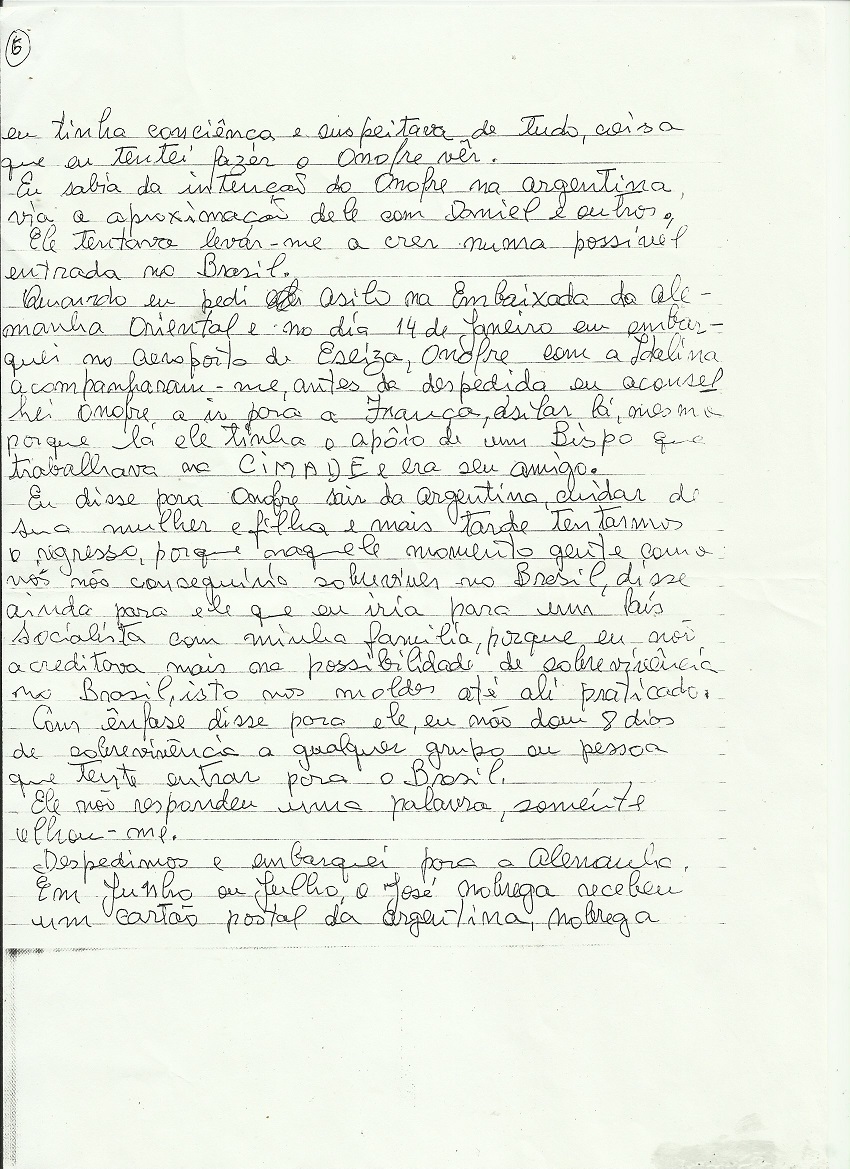 5
eu tinha conciênca e suspeitava de tudo, coisa
que eu tentei fazêr o Onofre vêr.
Eu sabia da intençaõ do Onofre na argentina,
via a aproximaçaõ dele com Daniel e outros,
Ele tentava levár-me a crer numa possivél
entrada no Brasil.
Quando eu pedi asilo na Embaixada da ale-
manha Oriental e no dia 14 de Janeiro em embar-
quei no aeroporto de Eseiza, Onofre com a Idalina
acompanharam-me, antes da despedida eu aconsel
hei Onofre a ir para a França, asilar lá, mesmo
porque lá ele tinha o apôio de um Bispo que
trabalhava na CIMADE e era seu amigo.
Eu disse para Onofre sair da argentina, cuidar de
sua mulher e filha e mais tarde tentarmos
o regresso, porque naquele momento gente como
nós não conseguiria sobreviver no Brasil, disse
ainda para ele que eu iria para um País
Socialista com minha familia, porque eu não
acreditava mais na possibilidade de sobrevivência
no Brasil, isto nos moldes até alí praticado.
Com ênfase disse para ele, eu não dou 8 dias
de sobrevivência a qualquer grupo ou pessoa
que tente entrar para o Brasil.
Ele não respondeu uma palavra, somênte
olhou-me.
Despedimos e embarquei para a Alemanha.
Em Junho ou Julho, o José Nobrega recebeu
um cartão postal da argentina, Nobrega